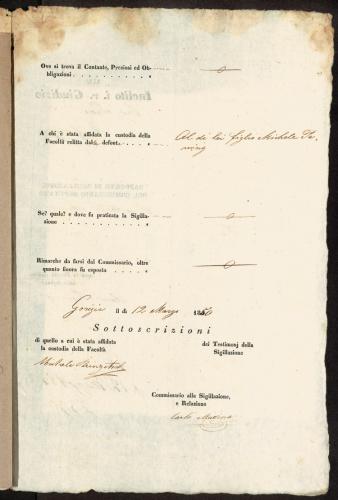 Ove si trova il Contante, Preziosi ed Ob-
bligazioni
A chi è stata affidata la custodia della
Facoltà relitta dal defunt
Al di lui figlio Michele
Se? quale? e dove fu praticata la Sigilla-
zione
Rimarche da farsi dal Commissario, oltre
quanto finora fu esposto
Gorizia li di 12 Marzo 1850
Sottoscrizioni
di quello a cui è stata affidata
la custodia della Facoltà
dei Testimonj della
Sigillazione
Michele
Commissario alla Sigillazione,
e Relazione
Carlo